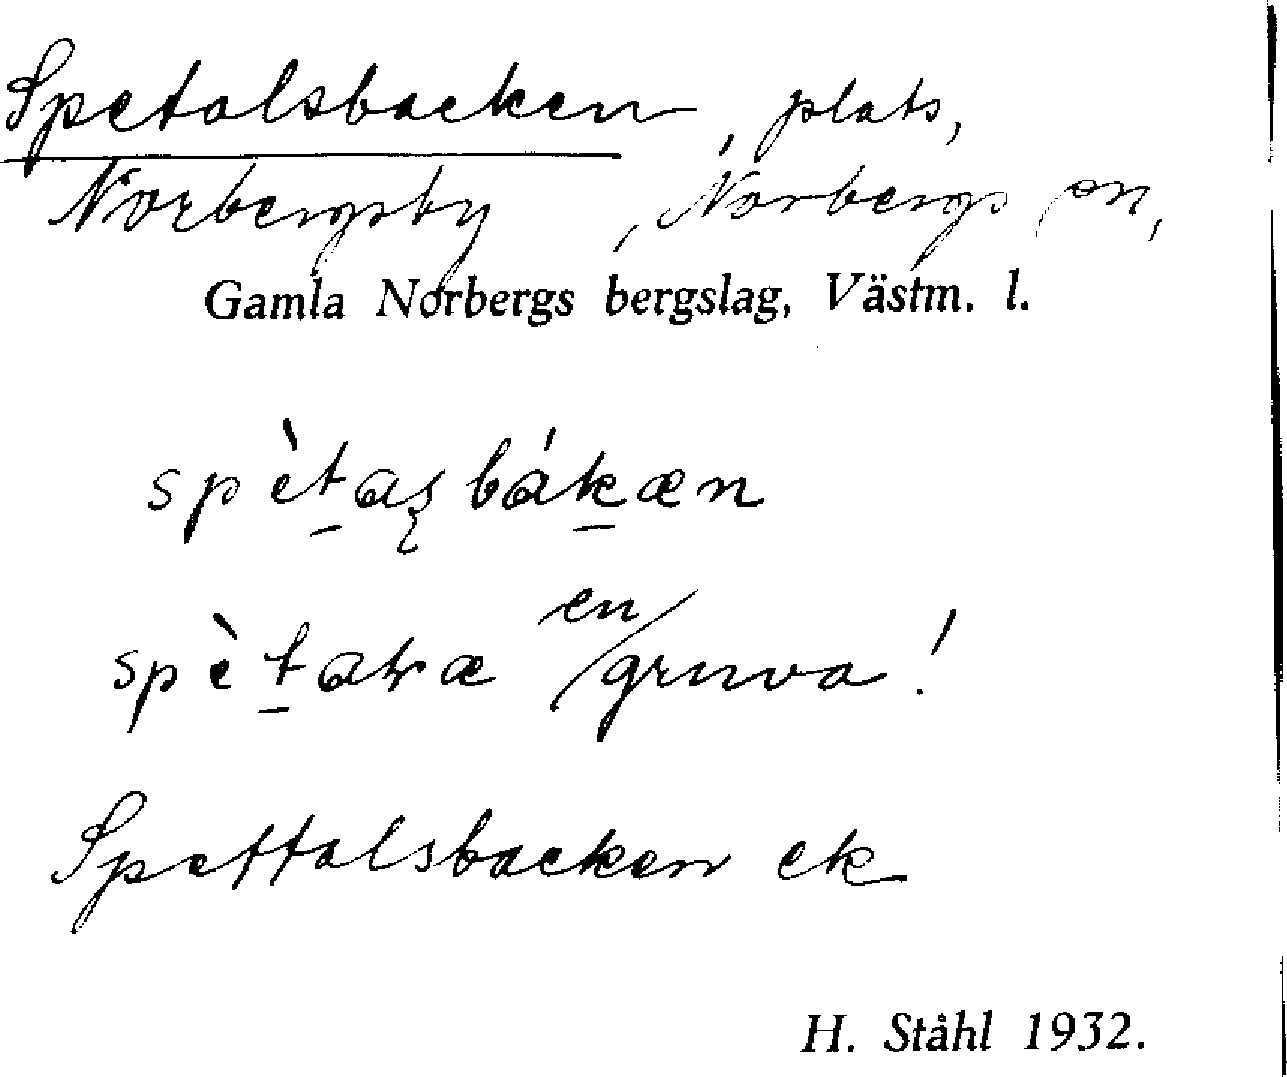 Spetalsbacken, plats,
Norbergsby, Norbergs sn,
Gamla Norbergs bergslag, Västm. l.
spè̀tas̨bákæn
en
spètaræ /gruva!
Spettalsbacken ek
H. Ståhl 1932.